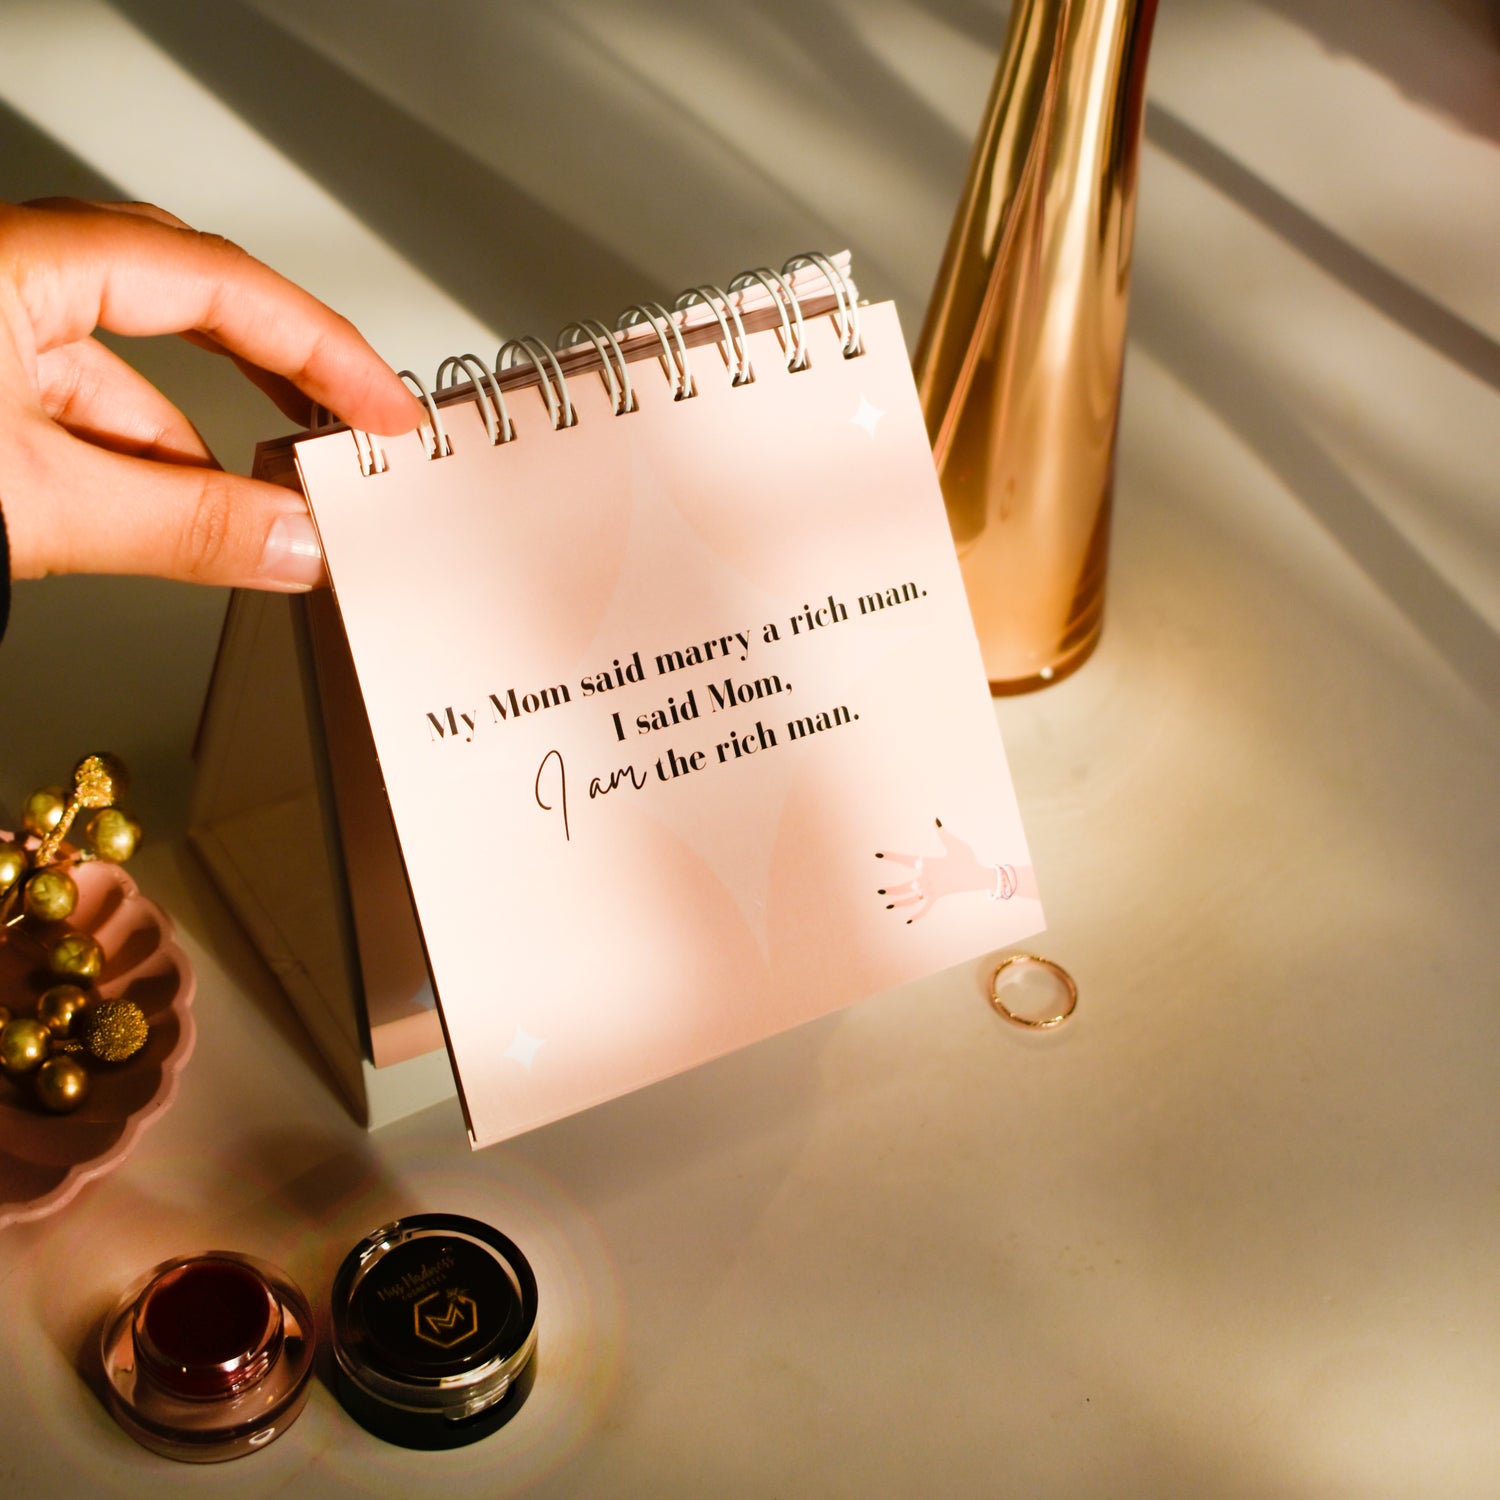 My Mom said marry a rich man.
I said Mom,
I am the rich man.
COSMETICS
M